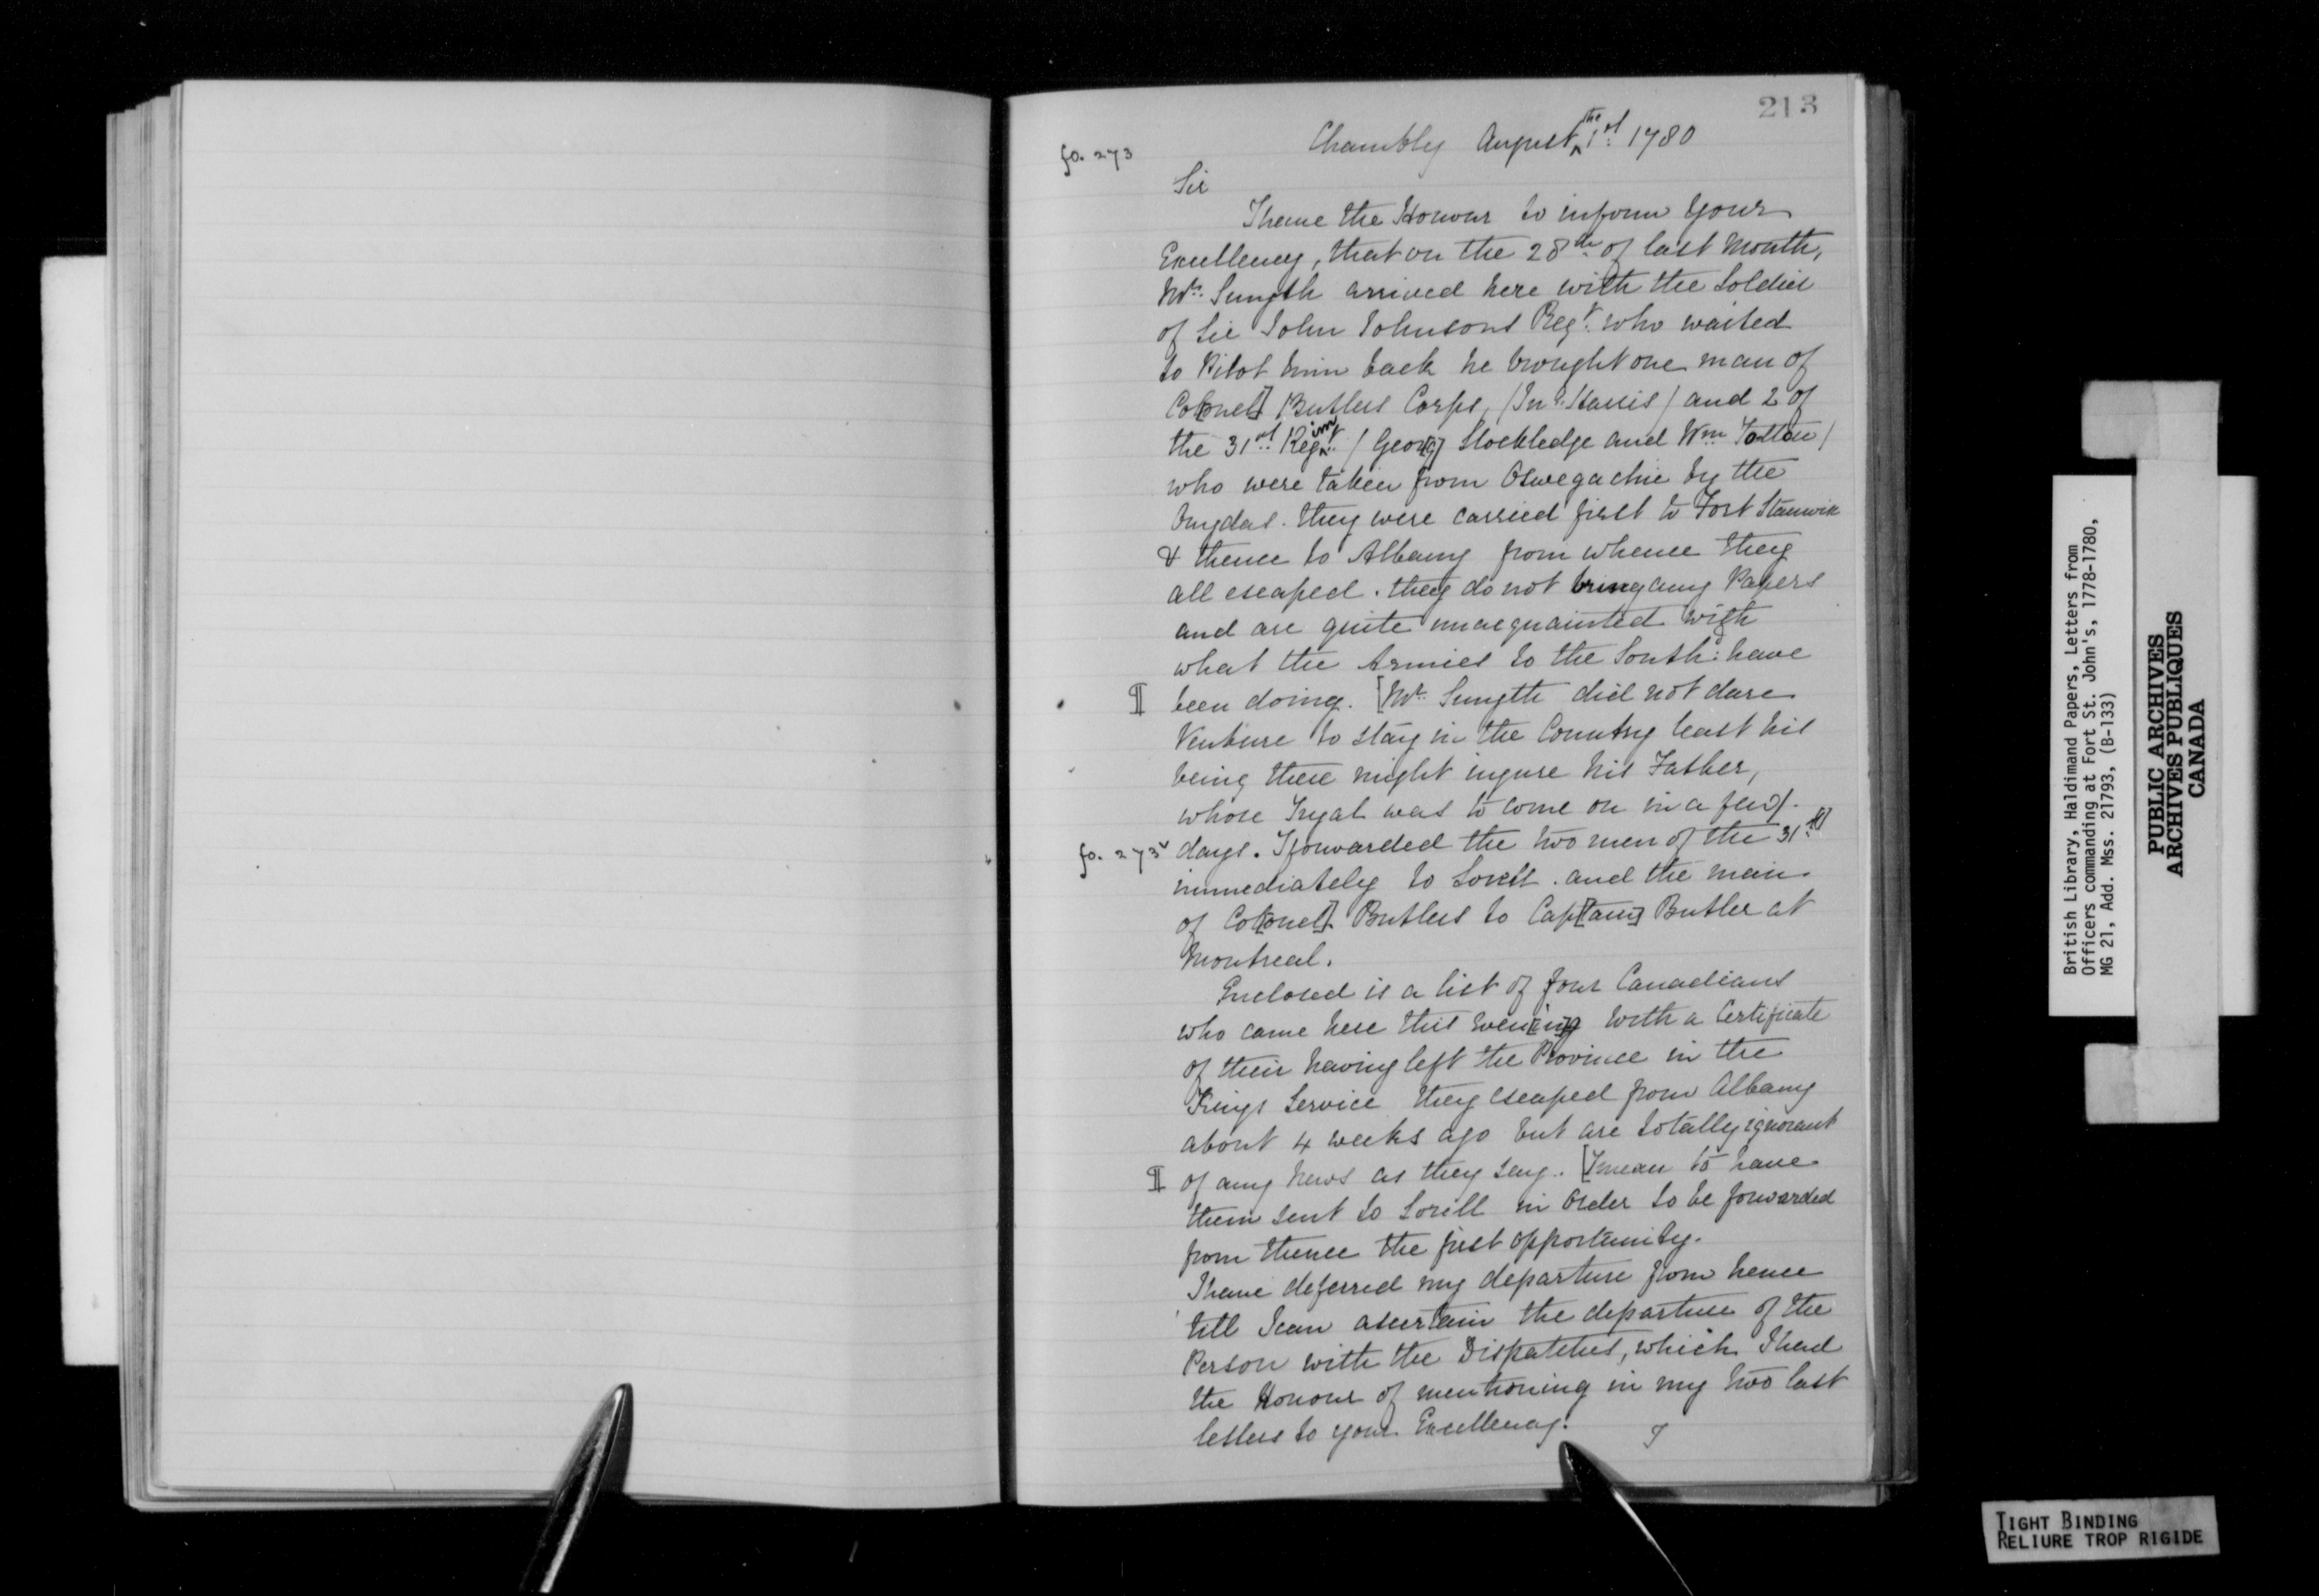 213
fo. 273
Chambly August the 1st 1780
Sir
I have the Honour to inform Your
Excellency, that on the 28th of last Month,
Mr. Smyth arrived here with the Soldier
of Sir John Johnsons Regt. who waited
to Pilot him back he brought one man of
Co[lonel] Butlers Corps, (Jno. Harris) and 2 of
the 31st Regimt. (Georg Stockledge and Wm Totten)
who were taken from Oswegachie by the
Onydas. they were carried first to Fort Stanwix
& thence to Albany from whence they
all escaped. they do not bring any Papers
and are quite unacquainted with
what the Armies to the Southd: have
¶ been doing. [Mr. Smyth did not dare
Venture to stay in the Country least his
being there might injure his Father,
whose Tryal was to come on in a few
fo. 273v days. I forwarded the two men of the 31st
immediately to Sorell. and the man
of Co[lonel]. Butlers to Cap[tain] Butler at
Montreal.
Enclosed is a list of four Canadians
who came here this Even[ing] with a Certificate
of their having left the Province in the
Kings Service they escaped from Albany
about 4 weeks ago but are totally ignorant
¶ of any News as they say. [I mean to have
them sent to Sorell in Order to be forwarded
from thence the first opportunity.
I have deferred my departure from hence
till I can ascertain the departure of the
Person with the Dispatches, which I had
the Honour of mentioning in my two last
letters to your Excellency. I
British Library, Haldimand Papers, Letters from
Officers commanding at Fort St. John's, 1778-1780,
MG 21, Add. Mss. 21793, (B-133)
PUBLIC ARCHIVES
ARCHIVES PUBLIQUES
CANADA
TIGHT BINDING
RELIURE TROP RIGIDE